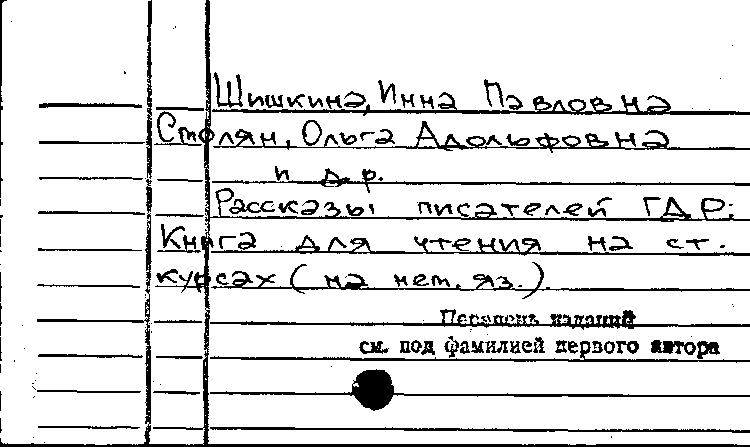 Шишкина, Инна Павловна
Столян, Ольга Адольфовна
и др.
Рассказы писателей ГДР:
Книга для чтения на ст.
курсах (на нем. яз.).
Перечень изданий
см. под фамилией первого автора